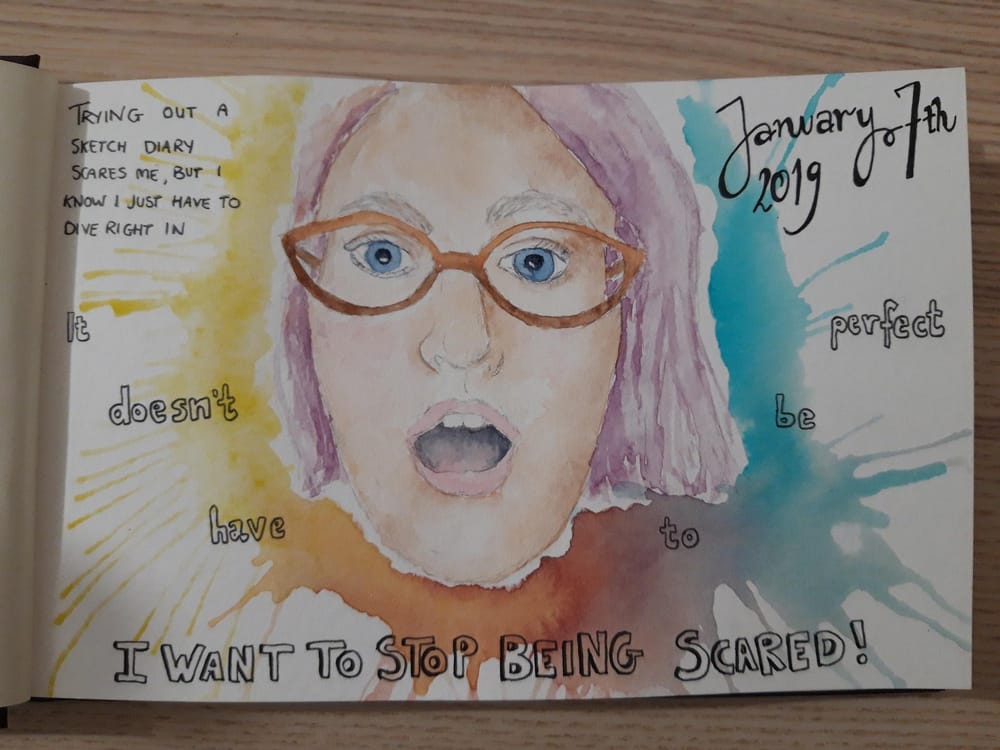 TRYING OUT A
SKETCH DIARY
SCARES ME, BUT I
KNOW I JUST HAVE TO
DIVE RIGHT IN
January 7th
2019
It
doesn't
have
to
be
perfect
I WANT TO STOP BEING SCARED!